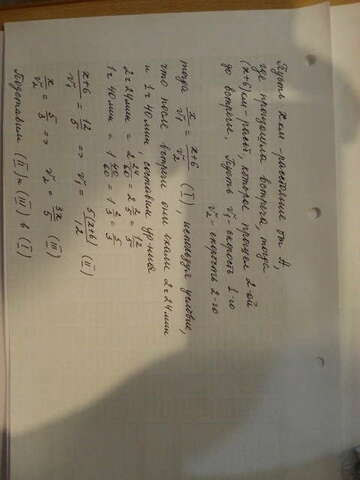 Пусть x км - расстояние от A,
где произошла встреча, тогда
(x+6)км - расст, которое прошел 2-ой
до встречи. Пусть v₁ - скорость 1-го
v₂ - скорость 2-го
тогда x/v₁ = x+6/v₂ (I), используя условие,
что после встречи они ехали 2ч 24мин
и 1ч 40мин, составим ур-ния
2ч 24мин = 2 24/60 = 2 2/5 = 12/5
1ч 40мин = 1 40/60 = 1 2/3 = 5/3
x+6/v₁ = 12/5 => v₁ = 5(x+6)/12 (II)
x/v₂ = 5/3 => v₂ = 3x/5 (III)
Подставим (II) и (III) в (I)